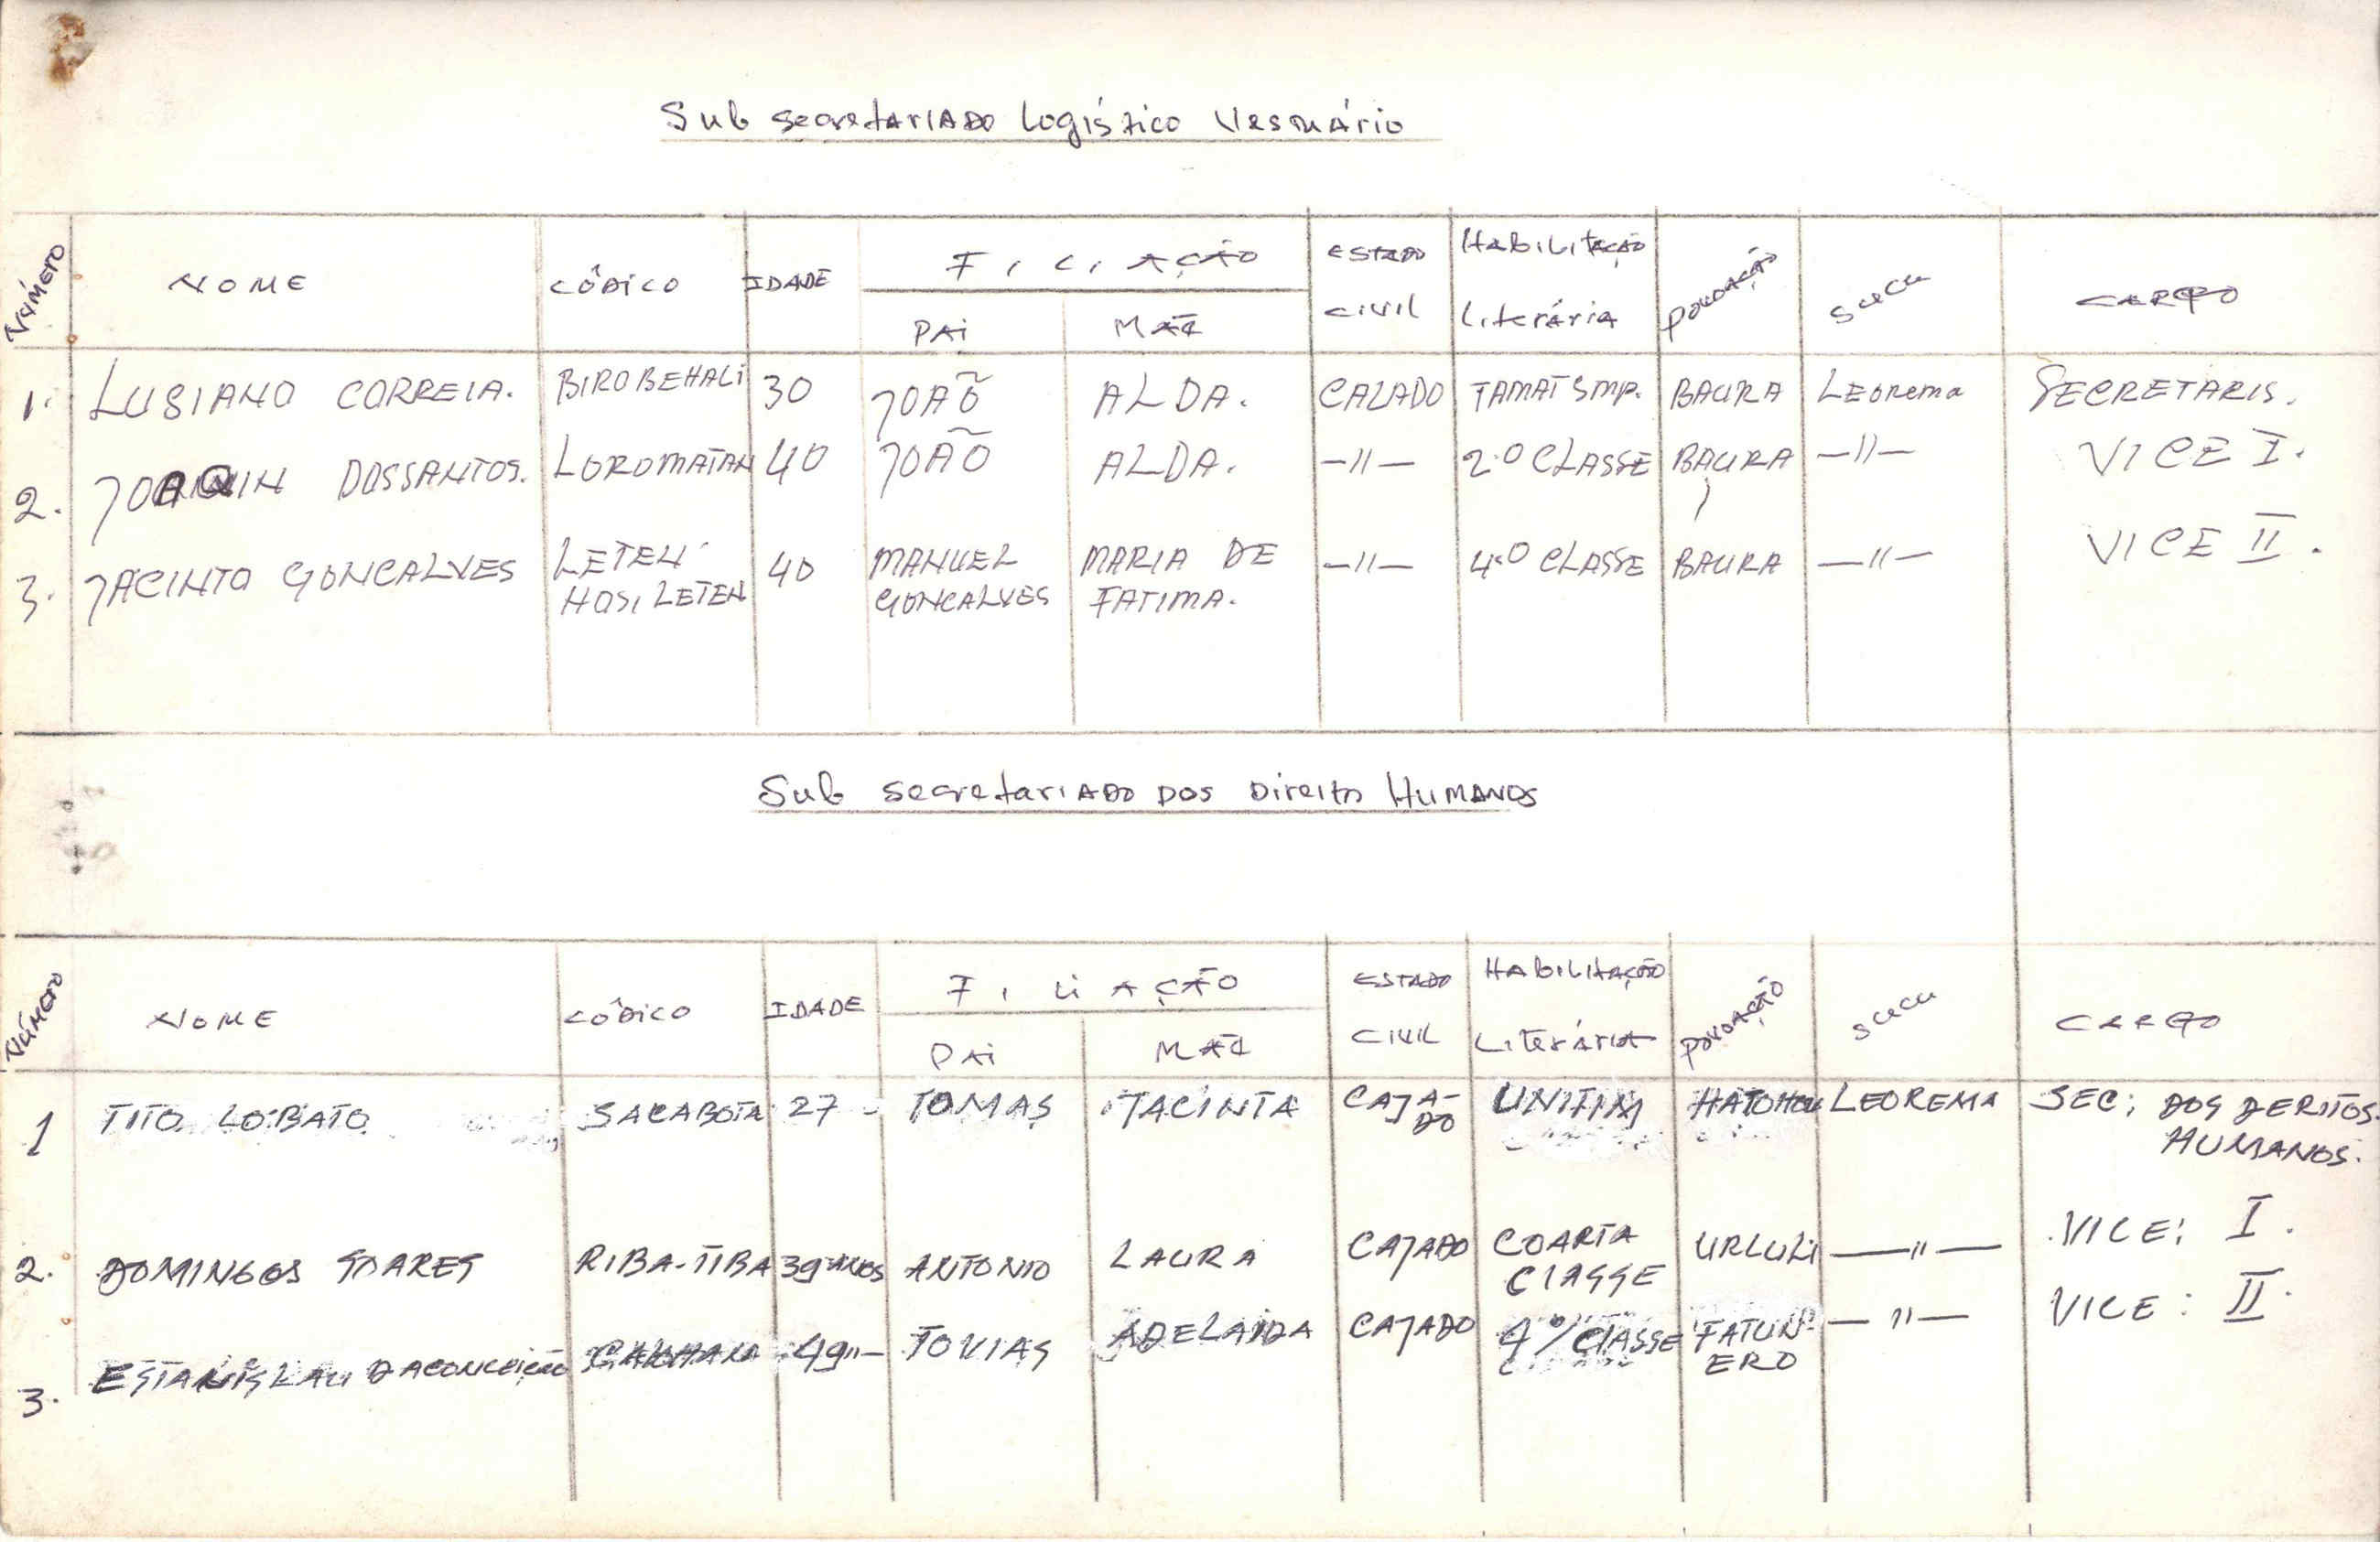 Sub secretariado Logístico Vestuário
Número NOME CÓDICO IDADE FILIAÇÃO ESTADO CIVIL Habilitação Literária povoação sucu CARGO
PAI MÃE
1. LUSIANO CORREIA. BIROBEHALI 30 JOAÕ ALDA. CAZADO TAMAT SMP. BAURA Leorema SECRETARIS.
2. JOAQUIN DOSSANTOS. LOROMATAN 40 JOAÕ ALDA. —"— 2.º CLASSE BAURA —"— VICE I.
3. JACINTO GONCALVES LETEN 40 MANUEL MARIA DE —"— 4.º CLASSE BAURA —"— VICE II.
HOSI LETEN GONCALVES FATIMA.
Sub secretariado dos Direitos Humanos
Número NOME CÓDICO IDADE FILIAÇÃO ESTADO CIVIL Habilitação Literária povoação sucu CARGO
PAI MÃE
1 TITO LOBATO SACABOTA 27 TOMAS JACINTA CAJA- UNITIM HATOHOU LEOREMA SEC; DOS DERITOS
DO HUMANOS.
2. DOMINGOS SOARES RIBA-TIBA 39 ANOS ANTONIO LAURA CAJADO COARTA URLULI —"— VICE: I.
CLASSE
3. ESTANISLAU DACONCEIÇÃO 49"— TOVIAS ADELAIDA CAJADO 4º/CLASSE FATUN- —"— VICE: II.
ERO